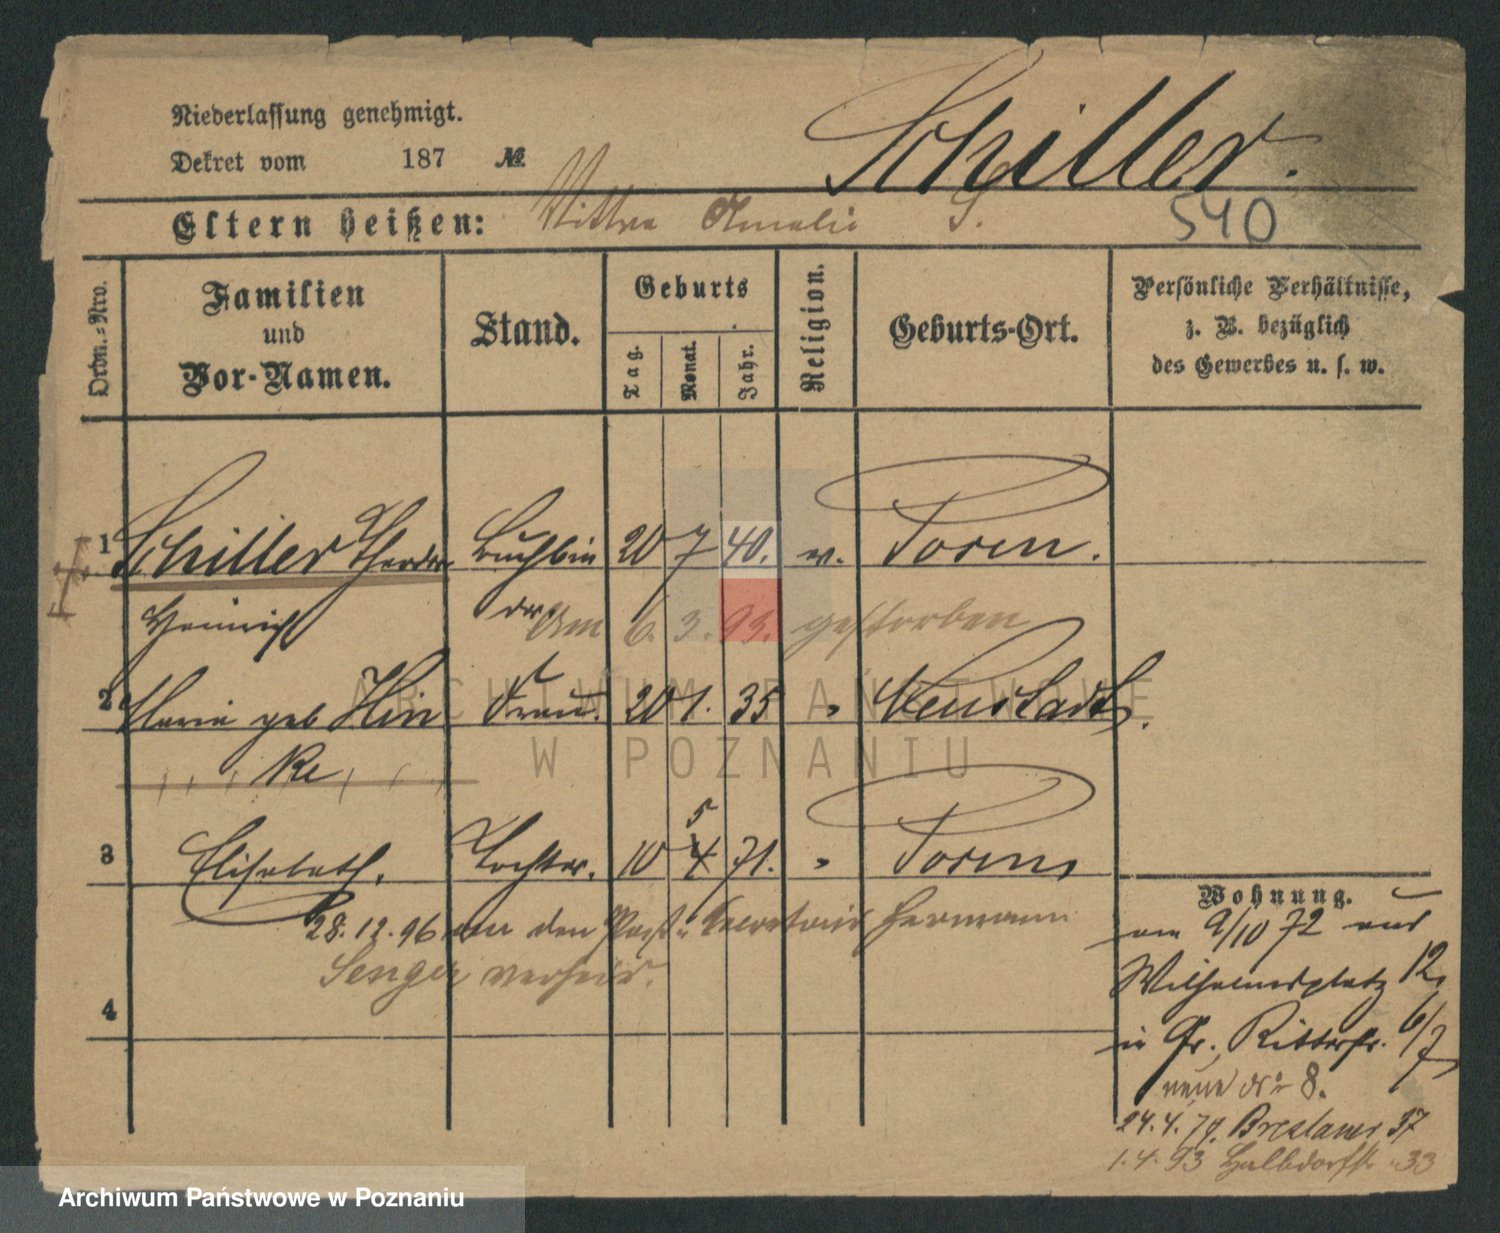 Niederlassung genehmigt.
Dekret vom 187 №
Schiller.
Eltern heißen: Amalie S.
540
Ordn.-Nro.
Familien
und
Vor-Namen.
Stand.
Geburts
Tag.
Monat.
Jahr.
Religion.
Geburts-Ort.
Persönliche Verhältnisse,
z. B. bezüglich
des Gewerbes u. s. w.
1 Schiller Theodor Buchbin 20 7 40. ev. Posen.
Heinrich der Am 6. 3. 93. gestorben
2 Maria geb Hin Frau. 20 1. 35 " Neustadt
ke
3 Elisabeth. Tochter. 10 4 5 71. " Posen
28.12.96 an den Post-Secretair Hermann
Senger verheir.
4
Wohnung.
am 9/10 72 aus
Wilhelmsplatz 12,
in Gr. Ritterstr. 6/7
neue No 8.
24.4.79. Breslauer 37
1.4.93 Halbdorfstr. 33
ARCHIWUM PAŃSTWOWE
W POZNANIU
Archiwum Państwowe w Poznaniu